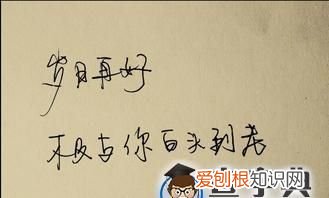 岁月再好
不及与你白头到老
爱刨根知识网